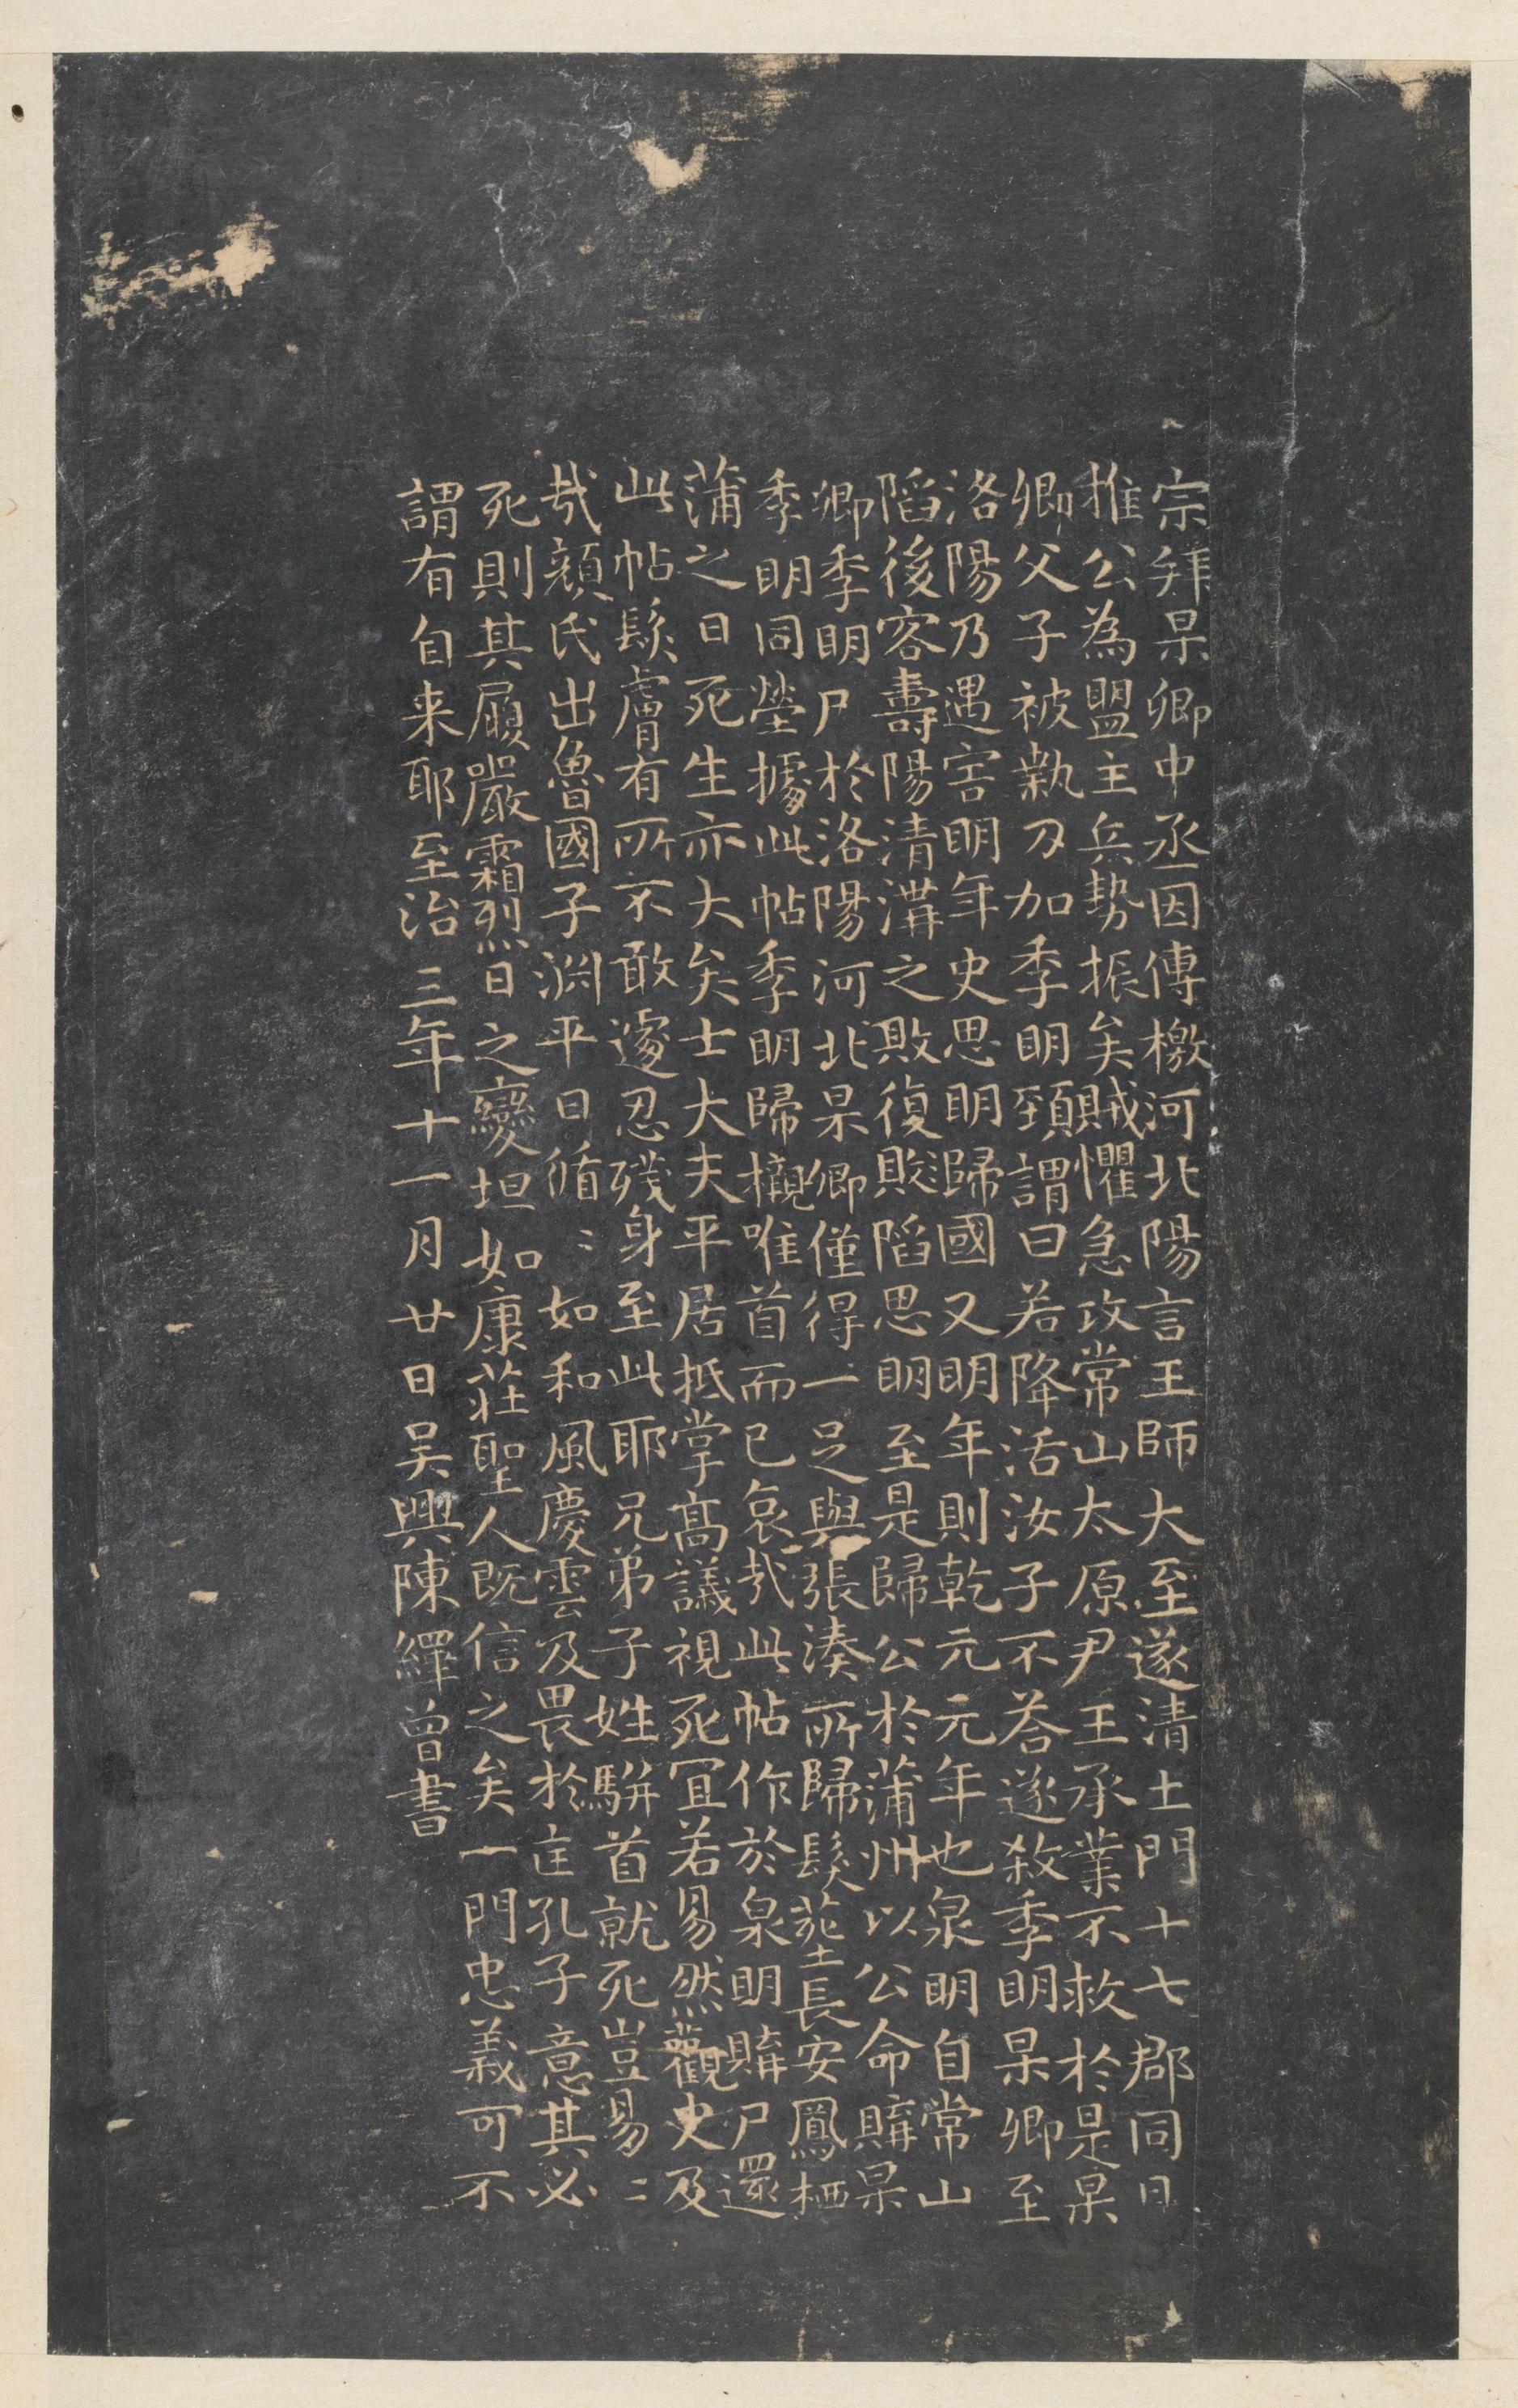 宗拜杲卿中丞因傳檄河北陽言王師大至遂清土門十七郡同日
推公為盟主兵勢振矣賊懼急攻常山太原尹王承業不救於是杲
卿父子被執刃加季明頸謂曰若降活汝子不荅遂殺季明杲卿至
洛陽乃遇害明年史思明歸國又明年則乾元元年也泉明自常山
陷後客壽陽清溝之敗復敗陷思明至是歸公於蒲州以公命購杲
卿季明尸於洛陽河北杲卿僅得一足與張湊所歸髮葬長安鳳栖
季明同塋據此帖季明歸櫬唯首而已哀㢤此帖作於泉明購尸還
蒲之日死生亦大矣士大夫平居抵掌高議視死冝若易然觀史及
此帖髮膚有所不敢遽忍殘身至此耶兄弟子姓駢首就死豈易〻
㢤顏氏出魯國子渊平日循〻如和風慶雲及畏於匡孔子意其必
死則其履嚴霜烈日之變坦如康莊聖人既信之矣一門忠義可不
謂有自来耶至治三年十一月廿日吴興陳繹曾書